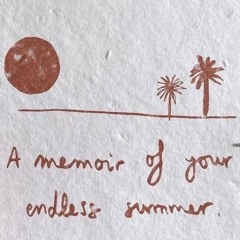 A memoir of your
endless summer.